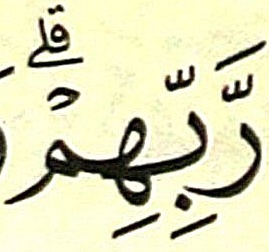 رَّبِّهِمْۗ